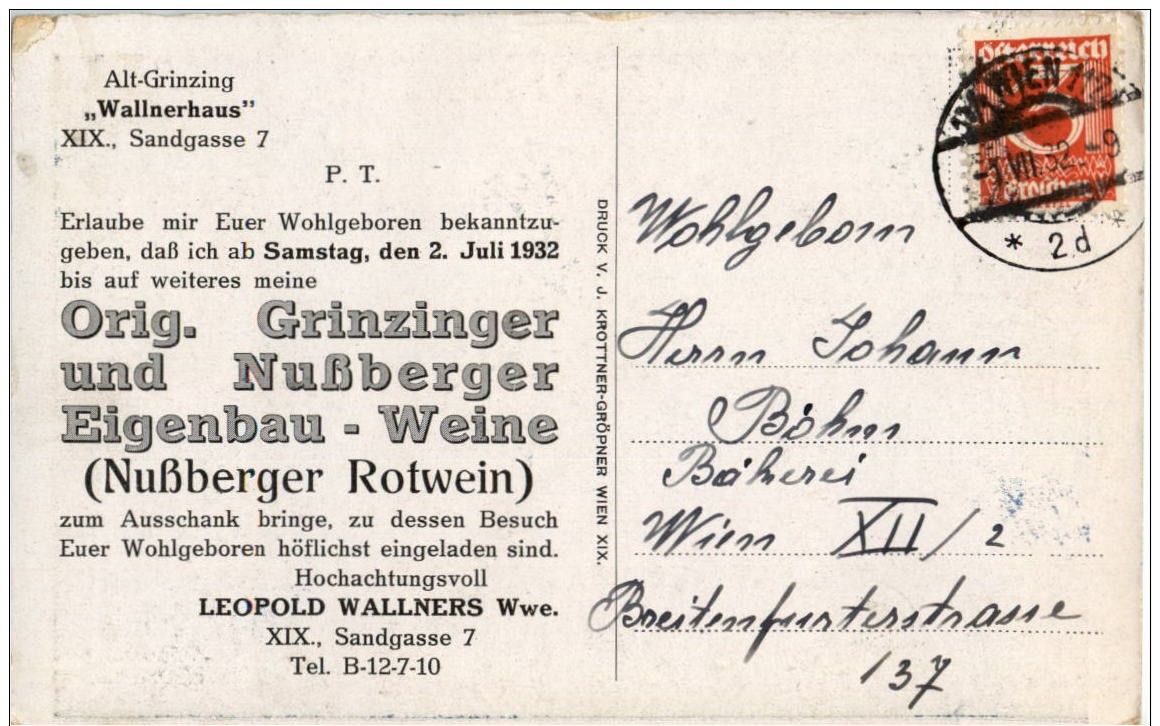 Alt-Grinzing
„Wallnerhaus”
XIX., Sandgasse 7
P. T.
Erlaube mir Euer Wohlgeboren bekanntzu-
geben, daß ich ab Samstag, den 2. Juli 1932
bis auf weiteres meine
Orig. Grinzinger
und Nußberger
Eigenbau - Weine
(Nußberger Rotwein)
zum Ausschank bringe, zu dessen Besuch
Euer Wohlgeboren höflichst eingeladen sind.
Hochachtungsvoll
LEOPOLD WALLNERS Wwe.
XIX., Sandgasse 7
Tel. B-12-7-10
DRUCK V. J. KROTTNER-GRÖPNER WIEN XIX.
österreich
Groschen
WIEN
VII. 32 -9
* 2d *
Wohlgeborn
Herrn Johann
Böhm
Bäkerei
Wien XII/2
Breitenfurterstrasse
137